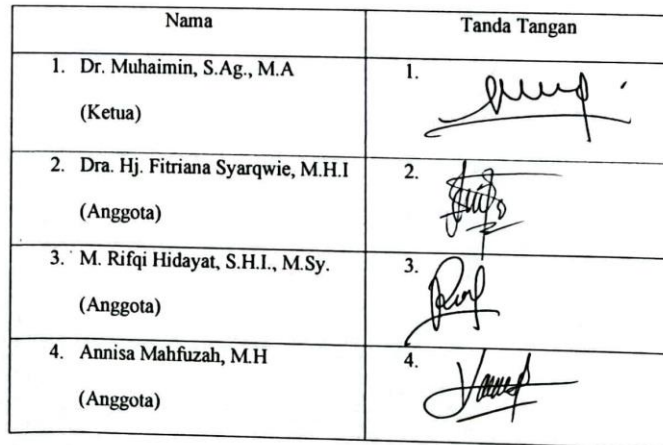 Nama Tanda Tangan
1. Dr. Muhaimin, S.Ag., M.A 1.
(Ketua)
2. Dra. Hj. Fitriana Syarqwie, M.H.I 2.
(Anggota)
3. M. Rifqi Hidayat, S.H.I., M.Sy. 3.
(Anggota)
4. Annisa Mahfuzah, M.H 4.
(Anggota)